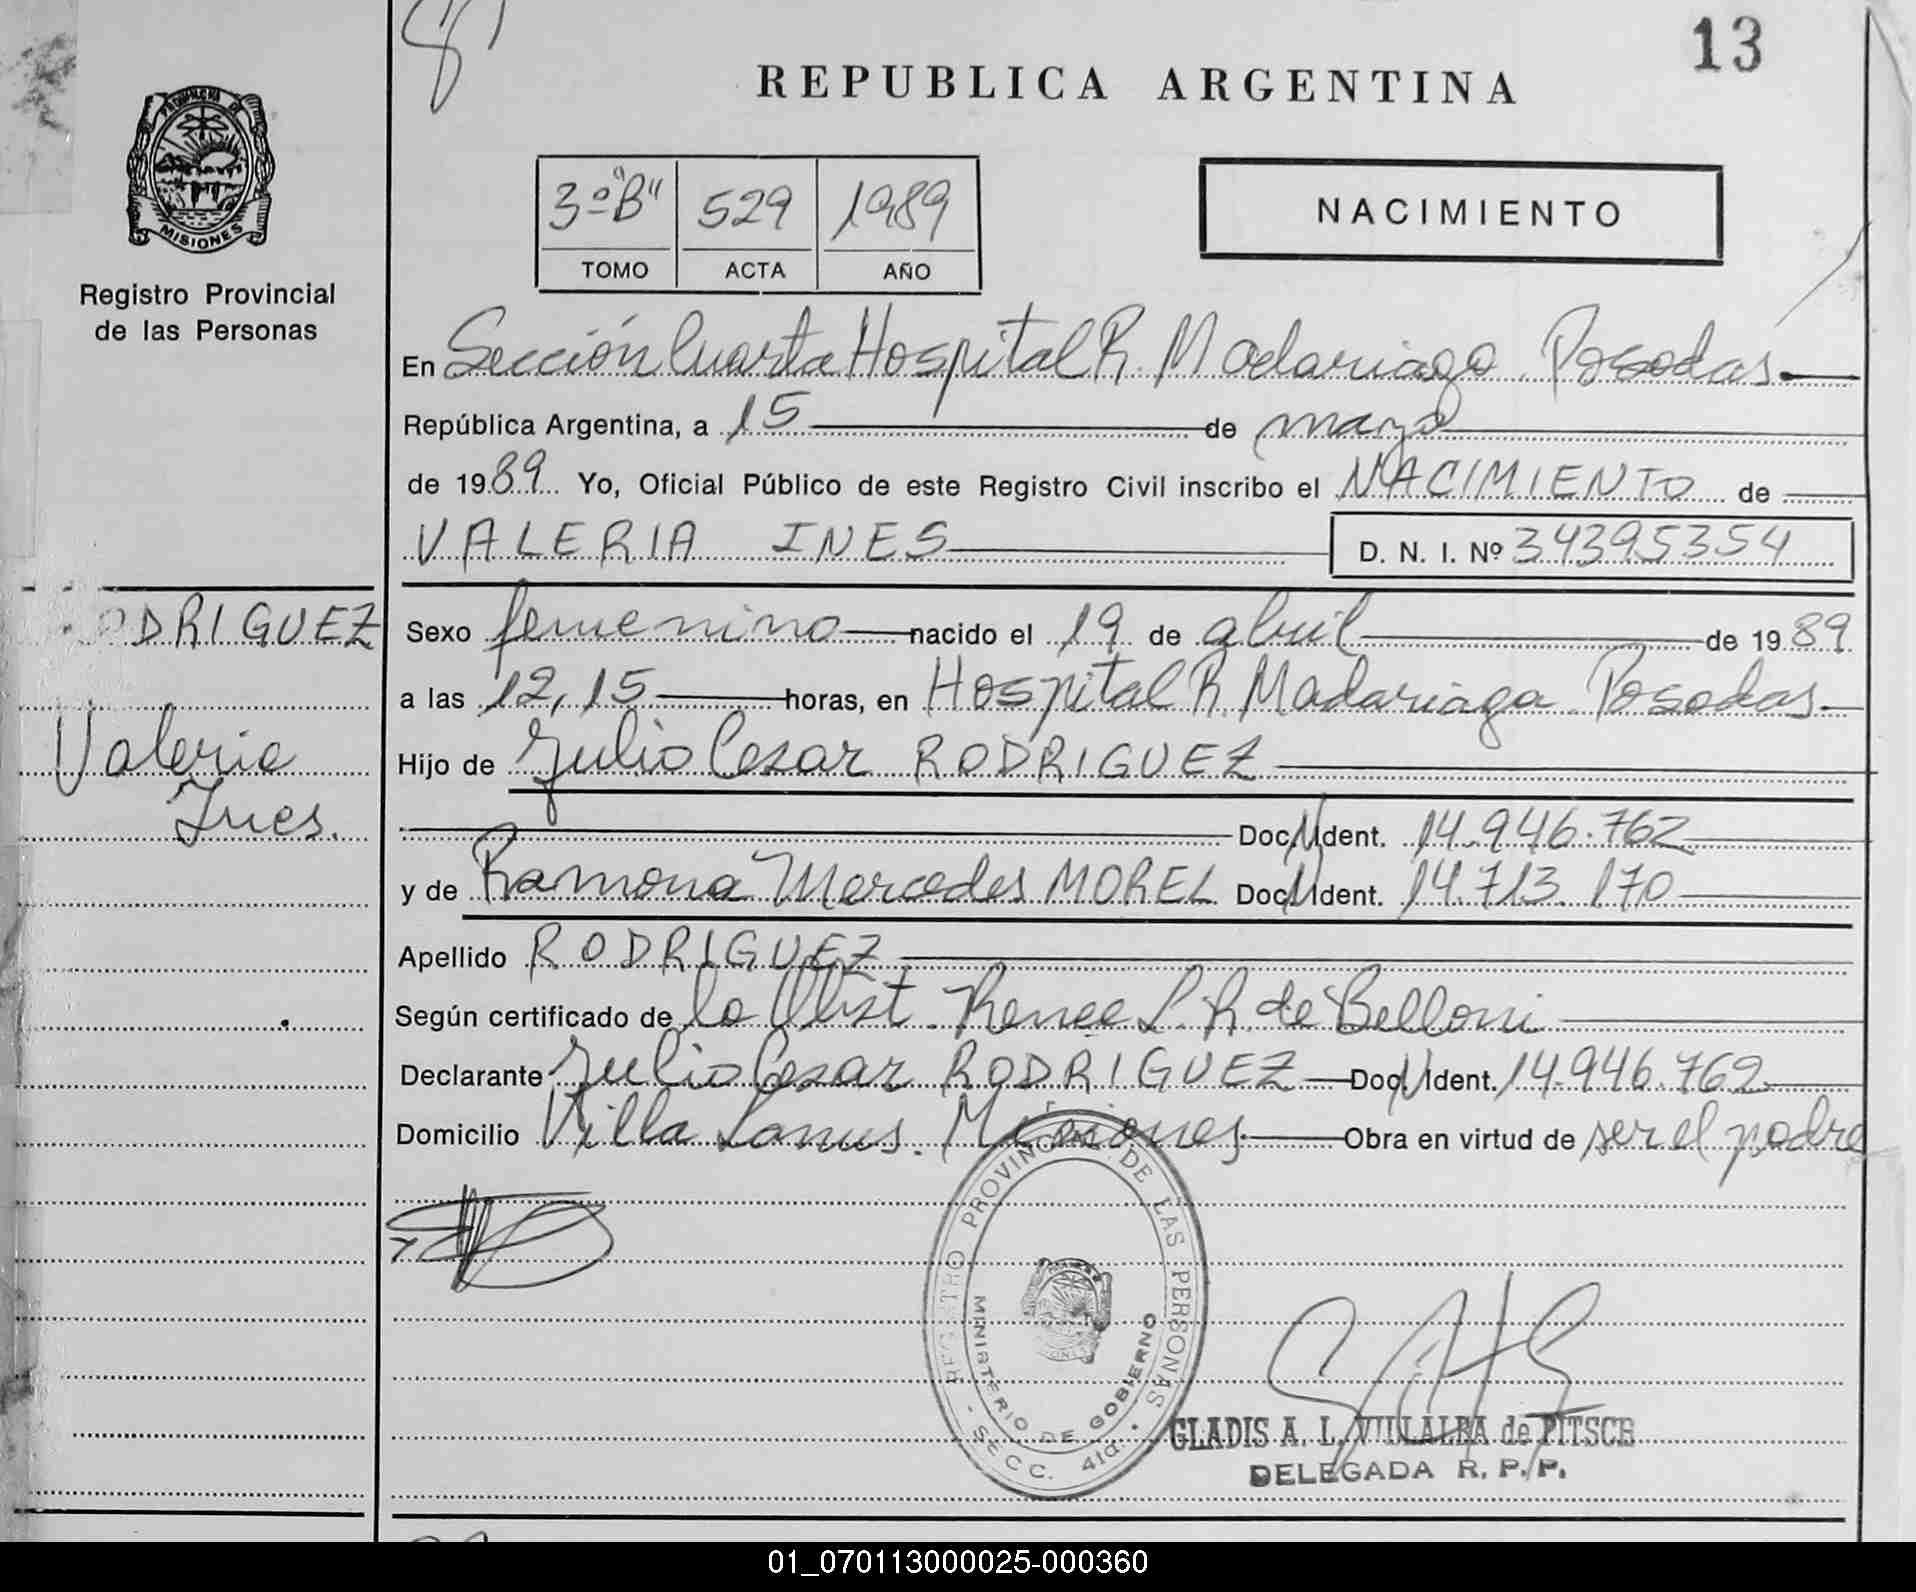 13
REPUBLICA ARGENTINA
PROVINCIA DE
MISIONES
Registro Provincial
de las Personas
3º "B" 529 1989
TOMO ACTA AÑO
NACIMIENTO
En Sección Cuarta Hospital R. Madariaga. Posadas
República Argentina, a 15 de mayo
de 1989 Yo, Oficial Público de este Registro Civil inscribo el NACIMIENTO de
VALERIA INES D. N. I. Nº 34395354
RODRIGUEZ
Valeria
Ines.
Sexo femenino nacido el 19 de abril de 1989
a las 12,15 horas, en Hospital R. Madariaga. Posadas
Hijo de Julio Cesar RODRIGUEZ
Doc. Ident. 14.946.762
y de Ramona Mercedes MOREL Doc. Ident. 14.713.170
Apellido RODRIGUEZ
Según certificado de la Obst. Renee L. R. de Belloni
Declarante Julio Cesar RODRIGUEZ Doc. Ident. 14.946.762
Domicilio Villa Lanus. Misiones Obra en virtud de ser el padre
REGISTRO PROVINCIAL DE LAS PERSONAS
MINISTERIO DE GOBIERNO
SECC. 4ta.
GLADIS A. L. VILLALBA de PITSCH
DELEGADA R. P. P.
01_070113000025-000360